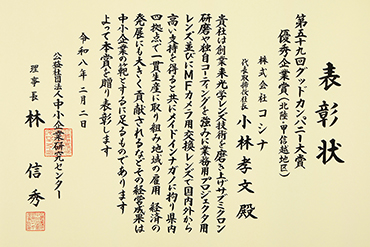 表彰状
第五十九回グッドカンパニー大賞
優秀企業賞(北陸・甲信越地区)
株式会社コシナ
代表取締役社長 小林孝文殿
貴社は創業来光学レンズ技術を磨き上げサブミクロン
研磨や独自コーティングを強みに業務用プロジェクタ用
レンズ並びにMFカメラ用交換レンズで国内外から
高い支持を得ると共にメイドインナガノに拘り県内
四拠点で一貫生産に取り組み地域の雇用 経済の
発展にも大きく貢献されるなどその経営成果は
中小企業の範とするに足るものであります
よって本賞を贈り表彰します
令和八年二月二日
公益社団法人中小企業研究センター
理事長 林信秀